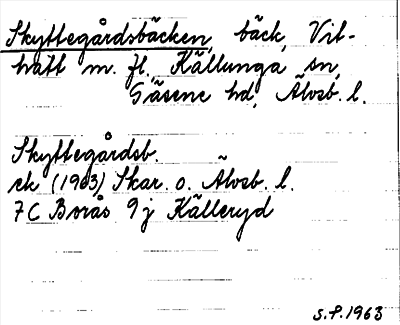 Skyttegårdsbäcken, bäck, Vit-
tvätt m. fl. Källunga sn,
Gäsene hd, Älvsb. l.
Skyttegårdsb.
ek (1963) Skar. o. Älvsb. l.
7C Borås 9j Källeryd
S.P. 1963